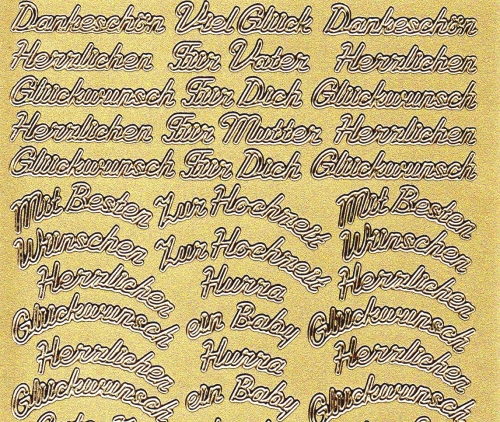 Dankeschön Viel Glück Dankeschön
Herzlichen Für Vater Herzlichen
Glückwunsch Für Dich Glückwunsch
Herzlichen Für Mutter Herzlichen
Glückwunsch Für Dich Glückwunsch
Mit Besten Zur Hochzeit Mit Besten
Wünschen Zur Hochzeit Wünschen
Herzlichen Hurra Herzlichen
Glückwunsch ein Baby Glückwunsch
Herzlichen Hurra Herzlichen
Glückwunsch ein Baby Glückwunsch